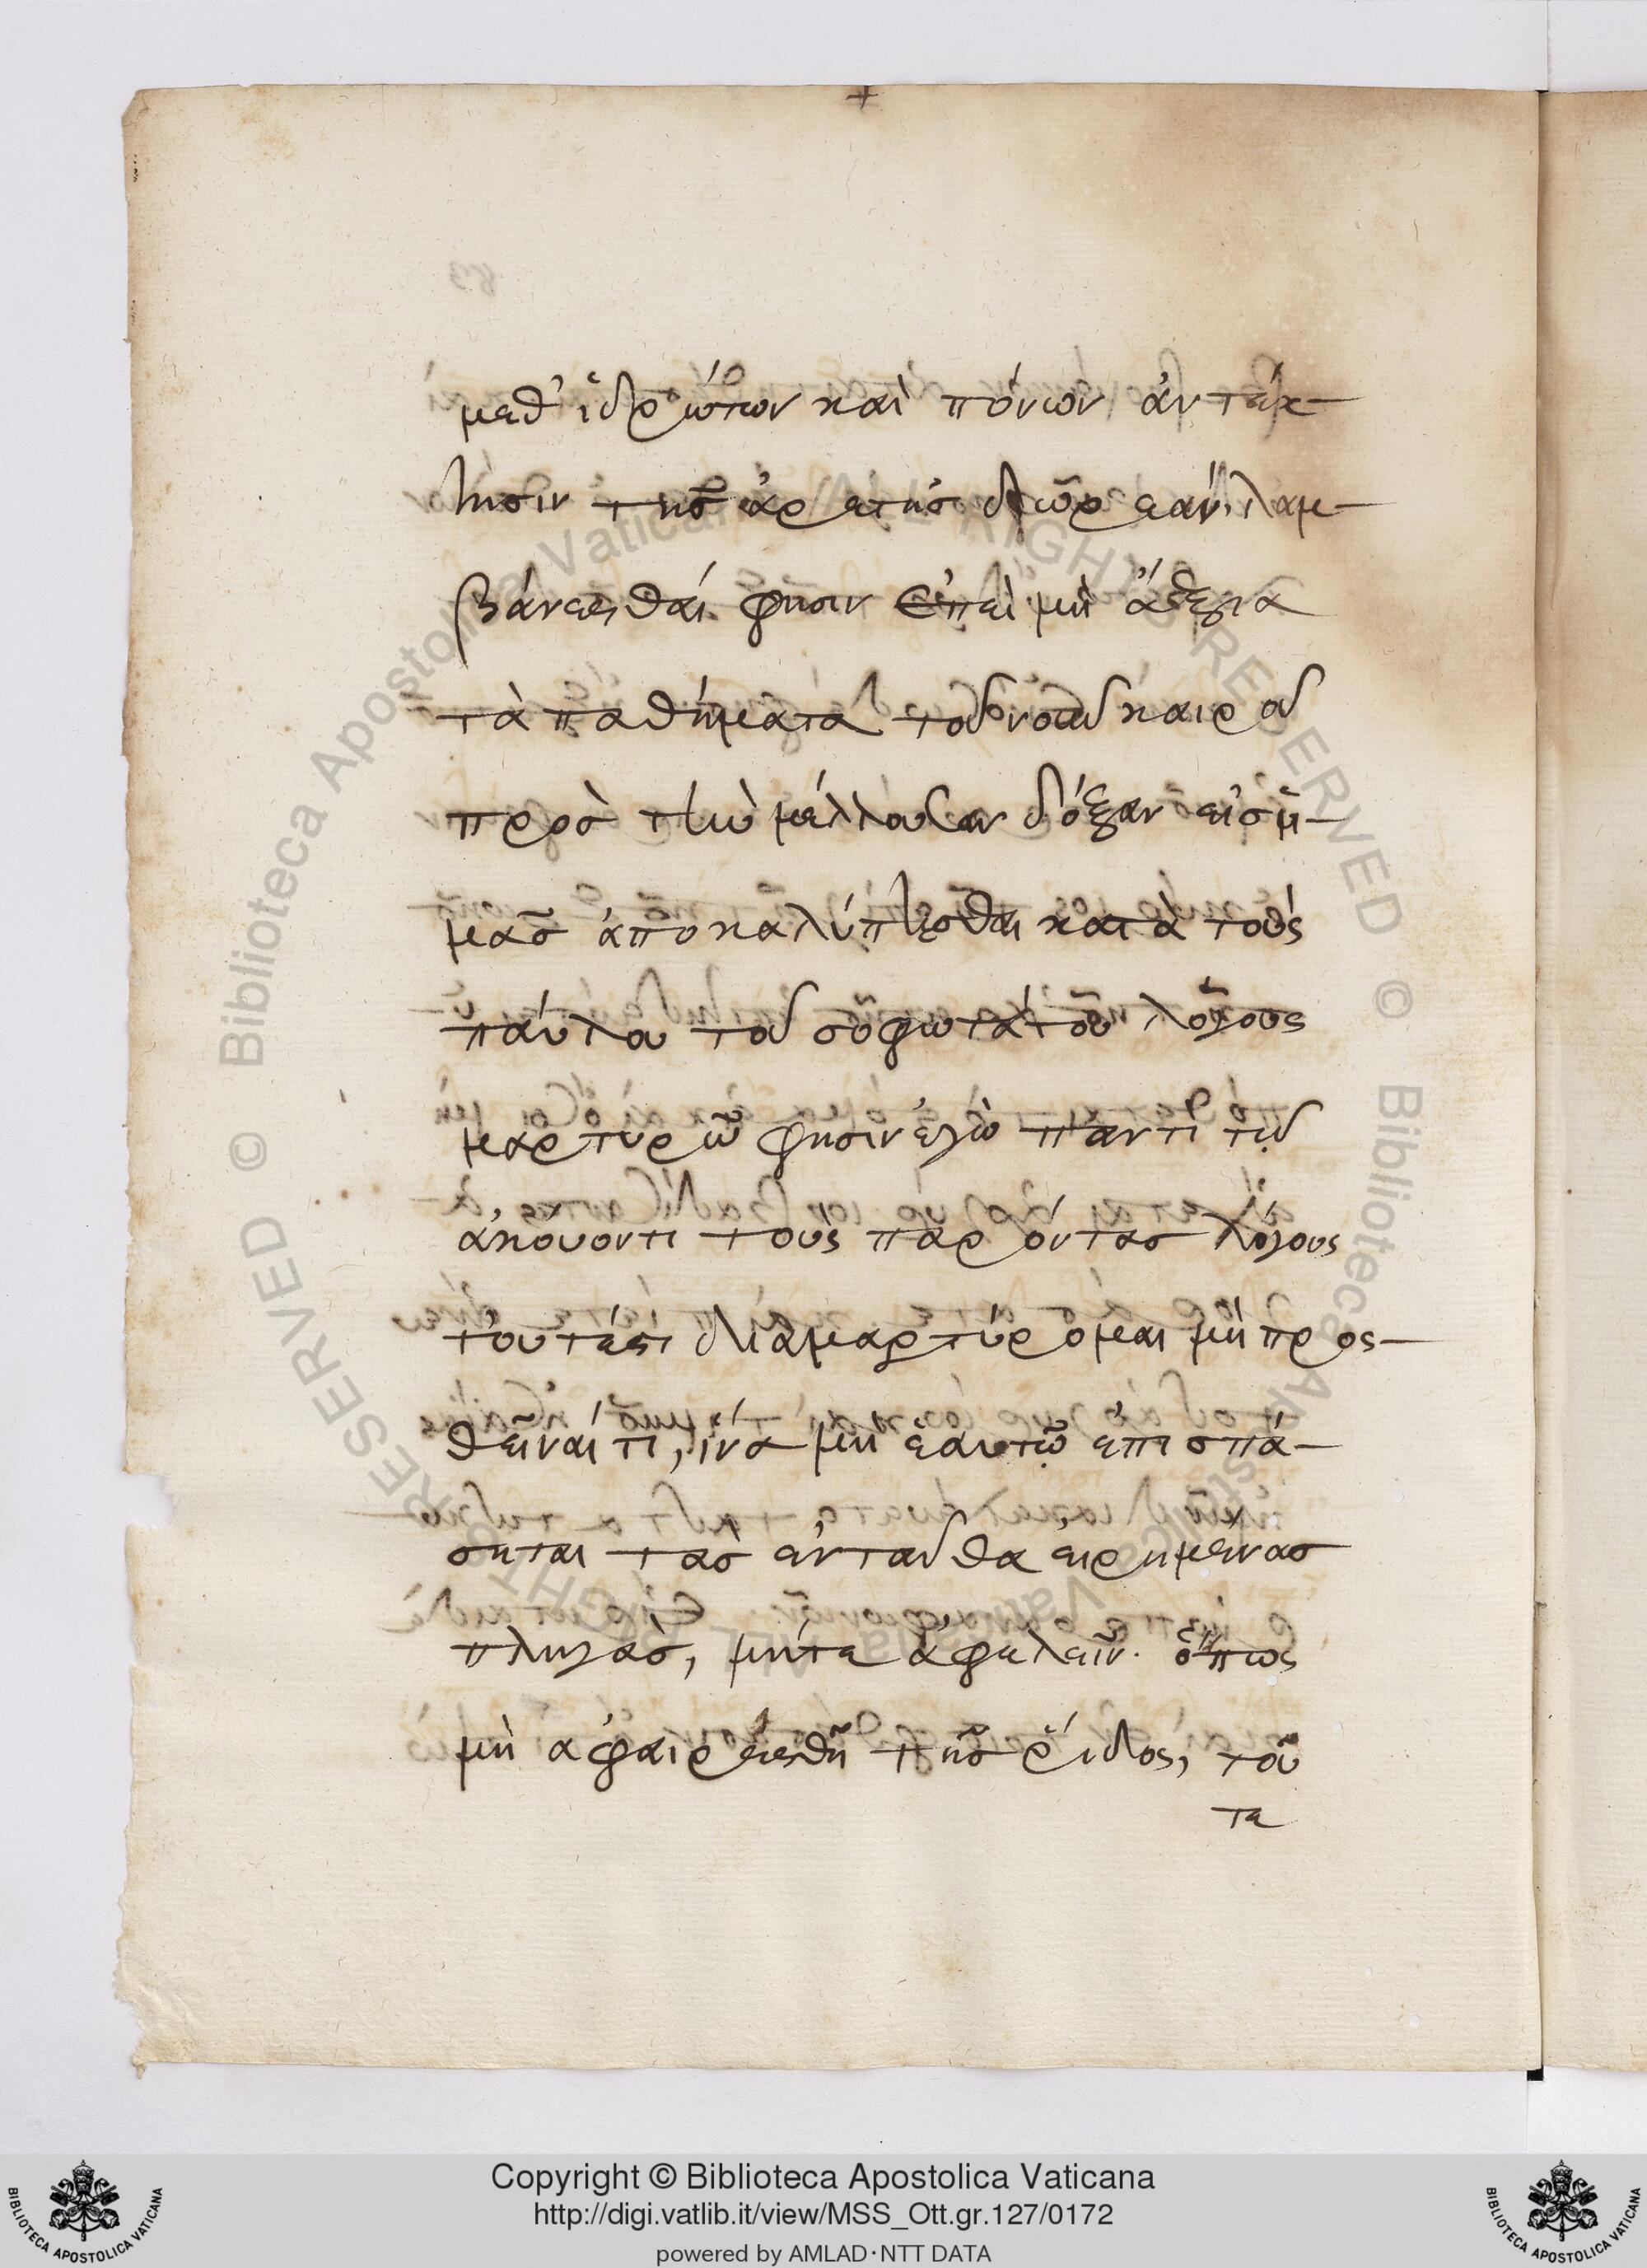 +
μεθ' ἱδρώτων καὶ πόνων ἀντέκ-
τησιν τῆς ἀρετῆς δωρεὰν λαμ-
βάνεσθαί φησιν ἐπεὶ μὴ ἄξια
τὰ παθήματα τοῦ νῦν καιροῦ
πρὸς τὴν μέλλουσαν δόξαν εἰς ἡ-
μᾶς ἀποκαλύπτεσθαι κατὰ τοὺς
παύλου τοῦ σοφωτάτου λόγους
μαρτυρῶ φησιν ἐγὼ παντὶ τῷ
ἀκούοντι τοὺς παρόντας λόγους
τουτέστι διαμαρτύρομαι μὴ προς-
θεῖναί τι, ἵνα μὴ ἑαυτῷ ἐπισπά-
σηται τὰς ἐνταῦθα εἰρημένας
πληγὰς, μήτε ἀφελεῖν. ὅπως
μὴ ἀφαιρεθῇ τῆς ῥίδος, τοῦ
τε
Copyright © Biblioteca Apostolica Vaticana
http://digi.vatlib.it/view/MSS_Ott.gr.127/0172
powered by AMLAD·NTT DATA
BIBLIOTECA APOSTOLICA VATICANA
BIBLIOTECA APOSTOLICA VATICANA
© Biblioteca Apostolica Vaticana ALL RIGHTS RESERVED
© Biblioteca Apostolica Vaticana ALL RIGHTS RESERVED